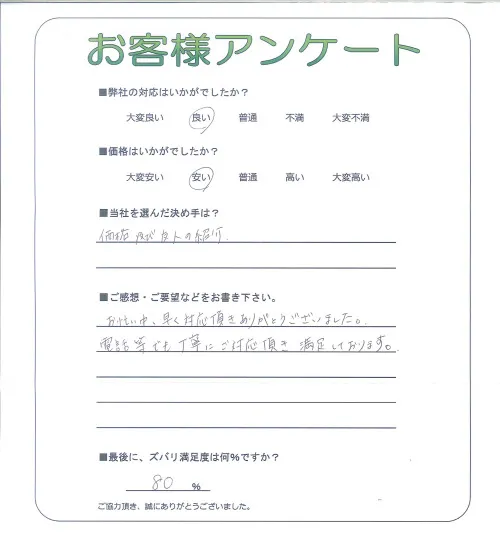 お客様アンケート
■弊社の対応はいかがでしたか？
大変良い 良い 普通 不満 大変不満
■価格はいかがでしたか？
大変安い 安い 普通 高い 大変高い
■当社を選んだ決め手は？
価格及び友人の紹介.
■ご感想・ご要望などをお書き下さい。
お忙い中、早く対応頂きありがとうございました。
電話等でも丁寧にご対応頂き 満足しております。
■最後に、ズバリ満足度は何％ですか？
80 %
ご協力頂き、誠にありがとうございました。